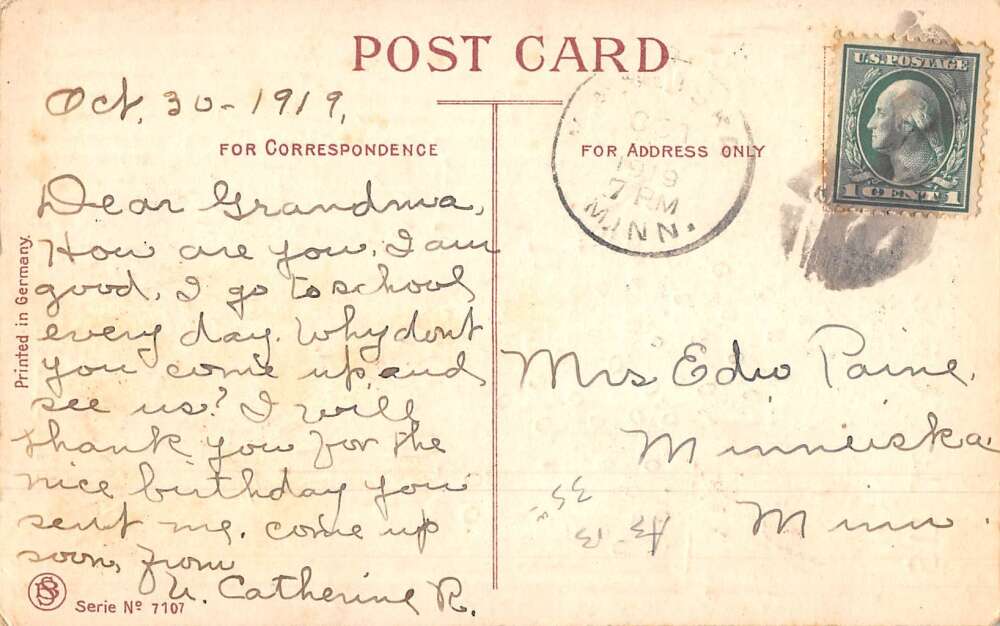 POST CARD
Oct. 30 - 1919.
FOR CORRESPONDENCE
Dear Grandma,
How are you, I am
good, I go to school
every day. Why dont
you come up and
see us? I will
thank you for the
nice birthday you
sent me. come up
soon, from
Catherine R.
Printed in Germany.
Serie Nº 7107
FOR ADDRESS ONLY
OCT
1919
7 PM
MINN.
U.S. POSTAGE
1 CENT 1
Mrs Edw Paine,
Minneiska
Minn.